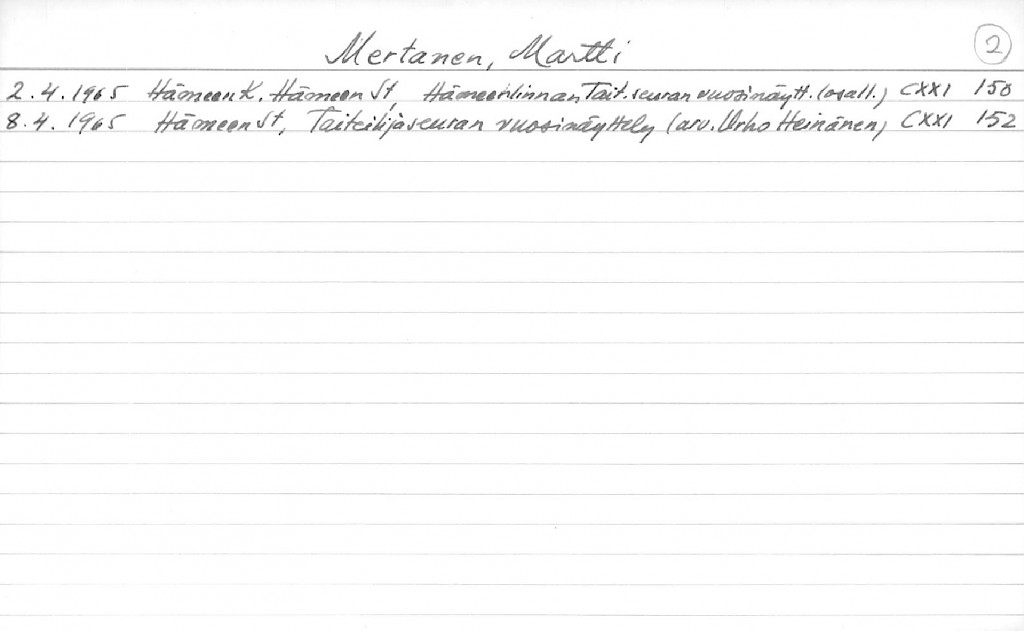 Mertanen, Martti
2
2.4.1965 Hämeen K, Hämeen St, Hämeenlinnan Tait.seuran vuosinäytt. (osall.) CXXI 150
8.4.1965 Hämeen St, Taiteilijaseuran vuosinäyttely (arv. Urho Heinänen) CXXI 152